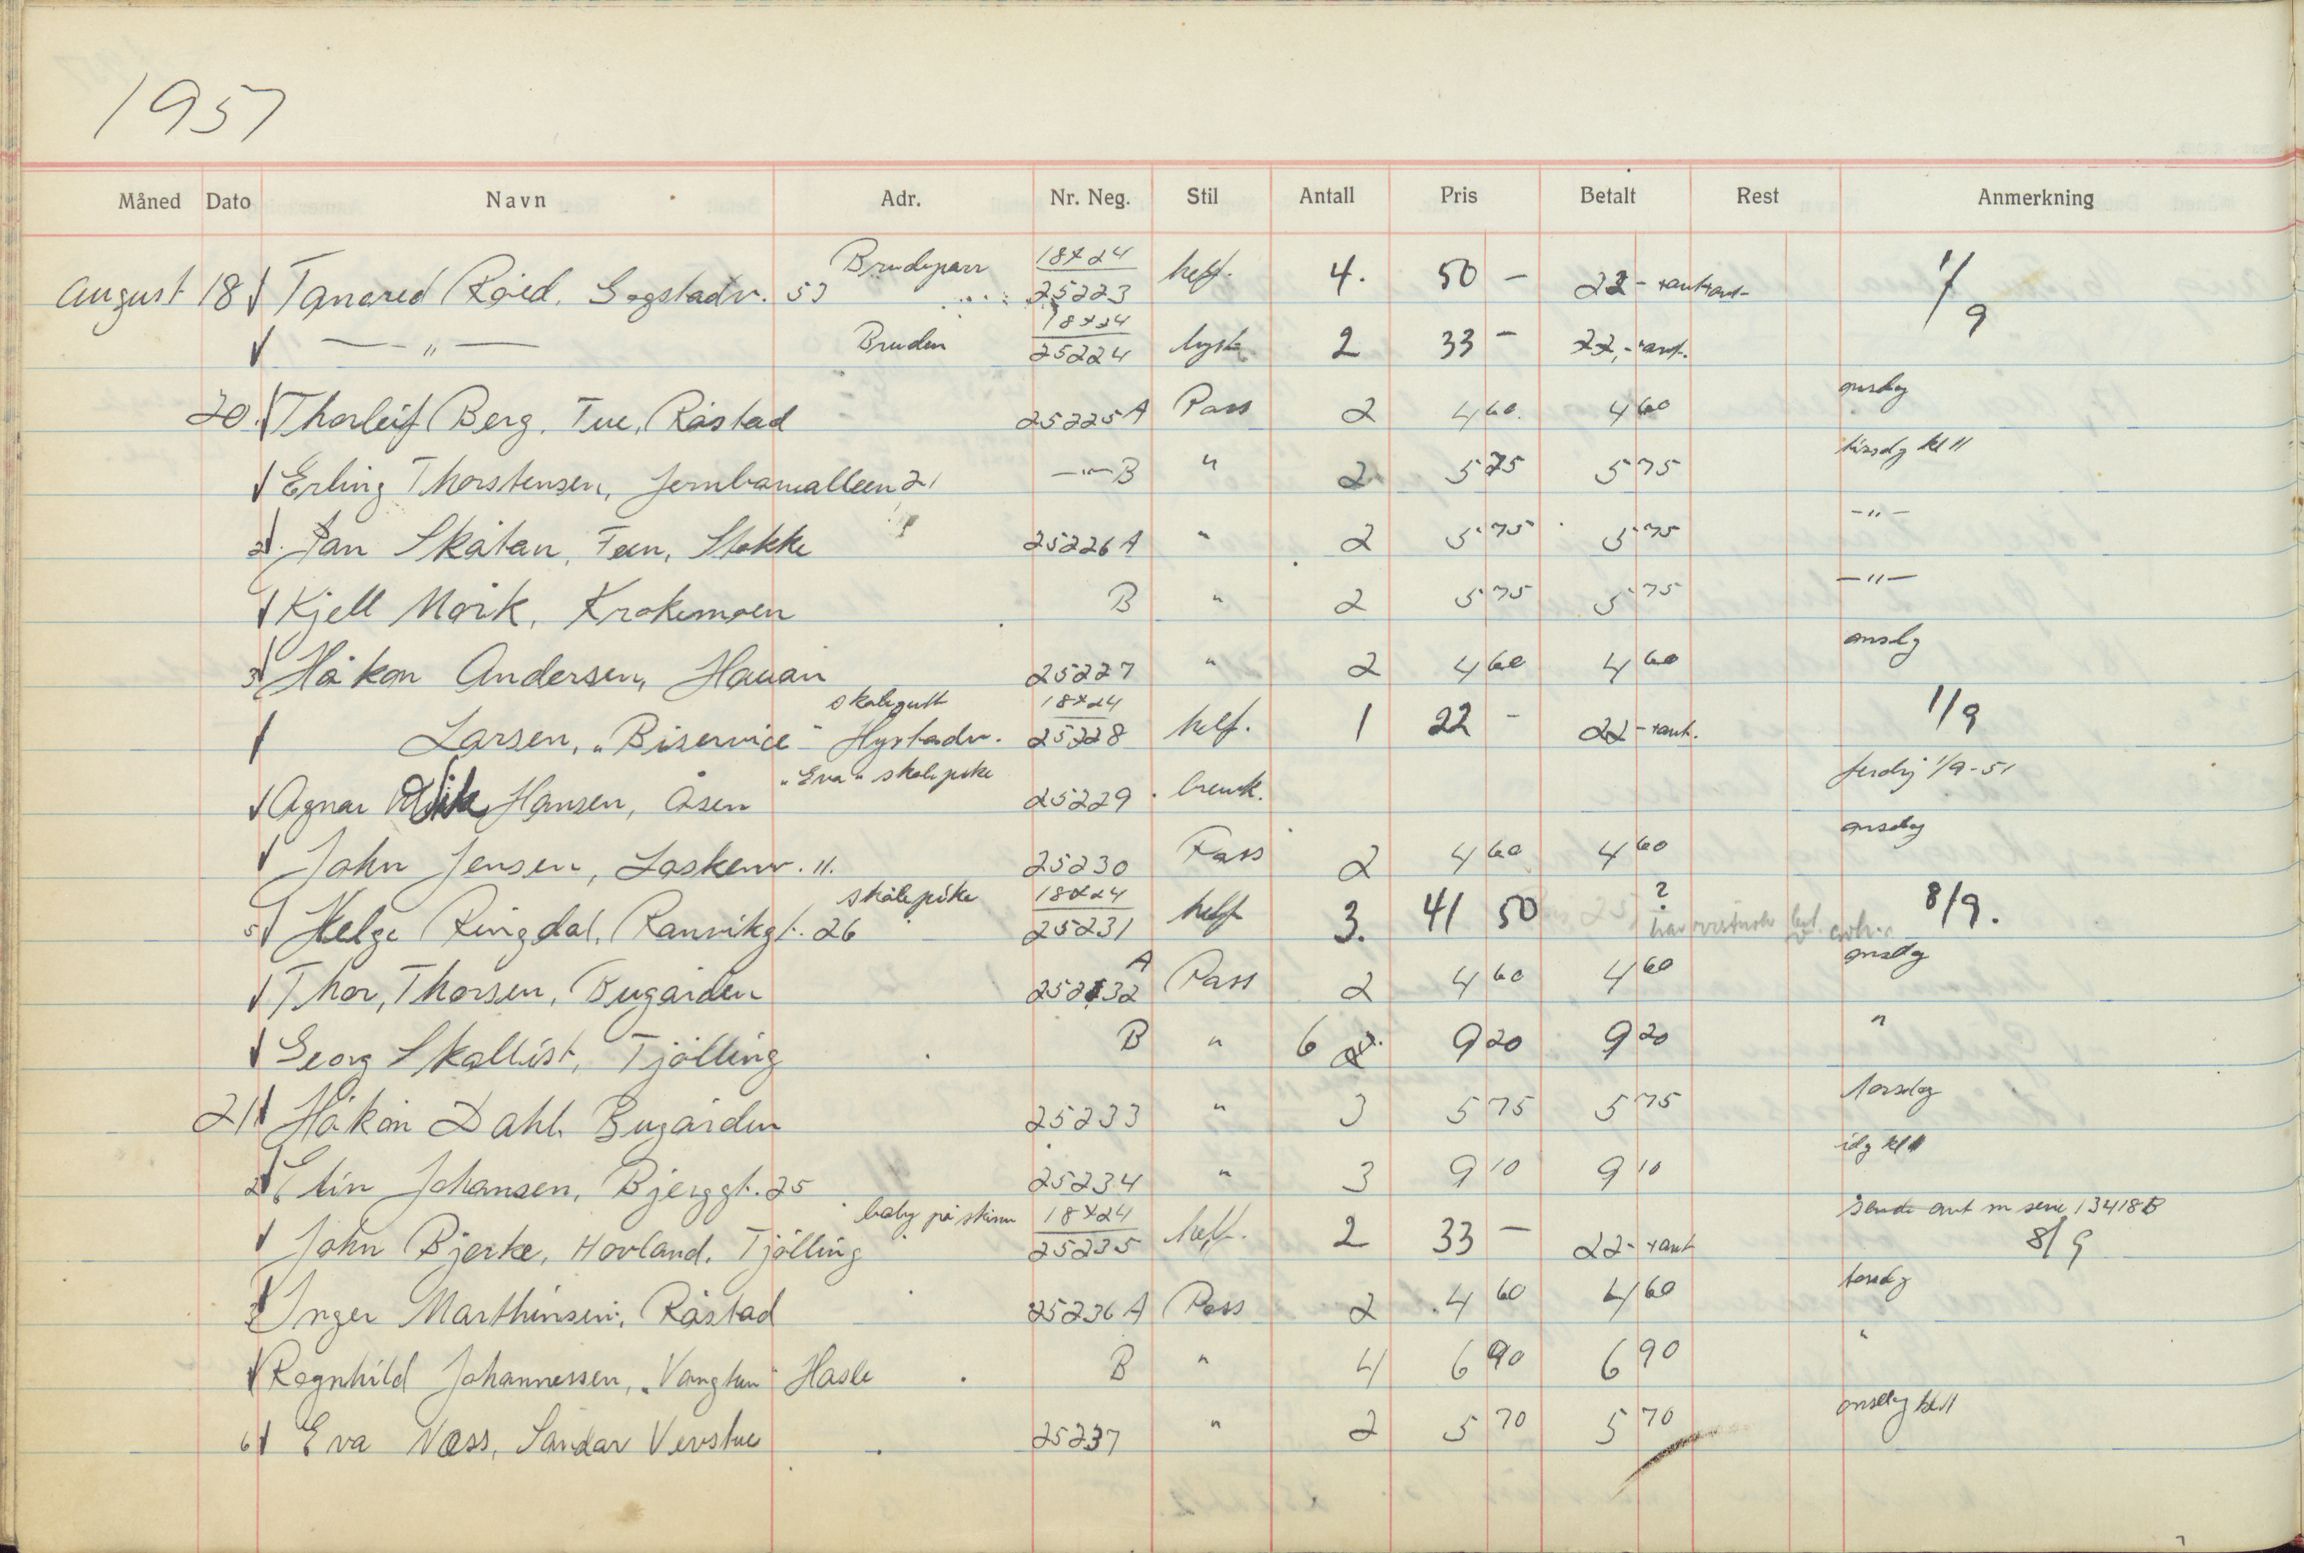 1951
Måned Dato Navn Adr. Nr. Neg. Stil Antall Pris Betalt Rest Anmerkning
August 18 Tancred Røed, Gogstadv. 53 Brudeparr 18x24 25223 helf. 4. 50 - 22 - + ant + ant - 1/9
— " — Bruden 18x24 25224 lyst 2 33 - 22,- + ant.
20. Thorleif Berg, Tue, Råstad 25225 A Pass 2 4 60 4 60 onsdag
Erling Thorstensen, Jernbanealleen 21 —"— B " 2 5 75 5 75 tirsdg kl 11
2. Jan Skatan, Feen, Stokke 25226 A " 2 5 75 5 75 -"-
Kjell Mørk, Krokemoen B " 2 5 75 5 75 -"-
3 Håkon Andersen, Hauan 25227 " 2 4 60 4 60 onsdg
Larsen, "Biservice" Hystadv. skolegutt 18x24 25228 helf. 1 22 - 22 - + ant. 1/9
Agnar Hansen, Åsen "Eva" skolepike 25229 brevk. ferdig 1/9-51
John Jensen, Laskenv. 11. 25230 Pass 2 4 60 4 60 onsdag
5 Helge Ringdal, Ranvikgt. 26 skolepike 18x24 25231 helf 3. 41 50 ? har 8/9.
Thor, Thorsen, Bugården 25232 A Pass 2 4 60 4 60 onsdg
Georg Skallist, Tjølling B " 6 9 20 9 20 "
21 Håkon Dahl, Bugården 25233 " 3 5 75 5 75 torsdag
2 Elin Johansen, Bjerggt. 25 25234 " 3 9 10 9 10 idg kl
John Bjerke, Hovland, Tjølling baby på skinn 18x24 25235 helf. 2 33 - 22 - + ant sende ant m serie 13418 B 8/9
3 Inger Marthinsen, Råstad 25236 A Pass 2 4 60 4 60 torsdg
Ragnhild Johannessen, "Vangtun" Hasle B " 4 6 90 6 90 "
6 Eva Næss, Sandar Vevstue 25237 " 2 5 70 5 70 onsdag kl 11